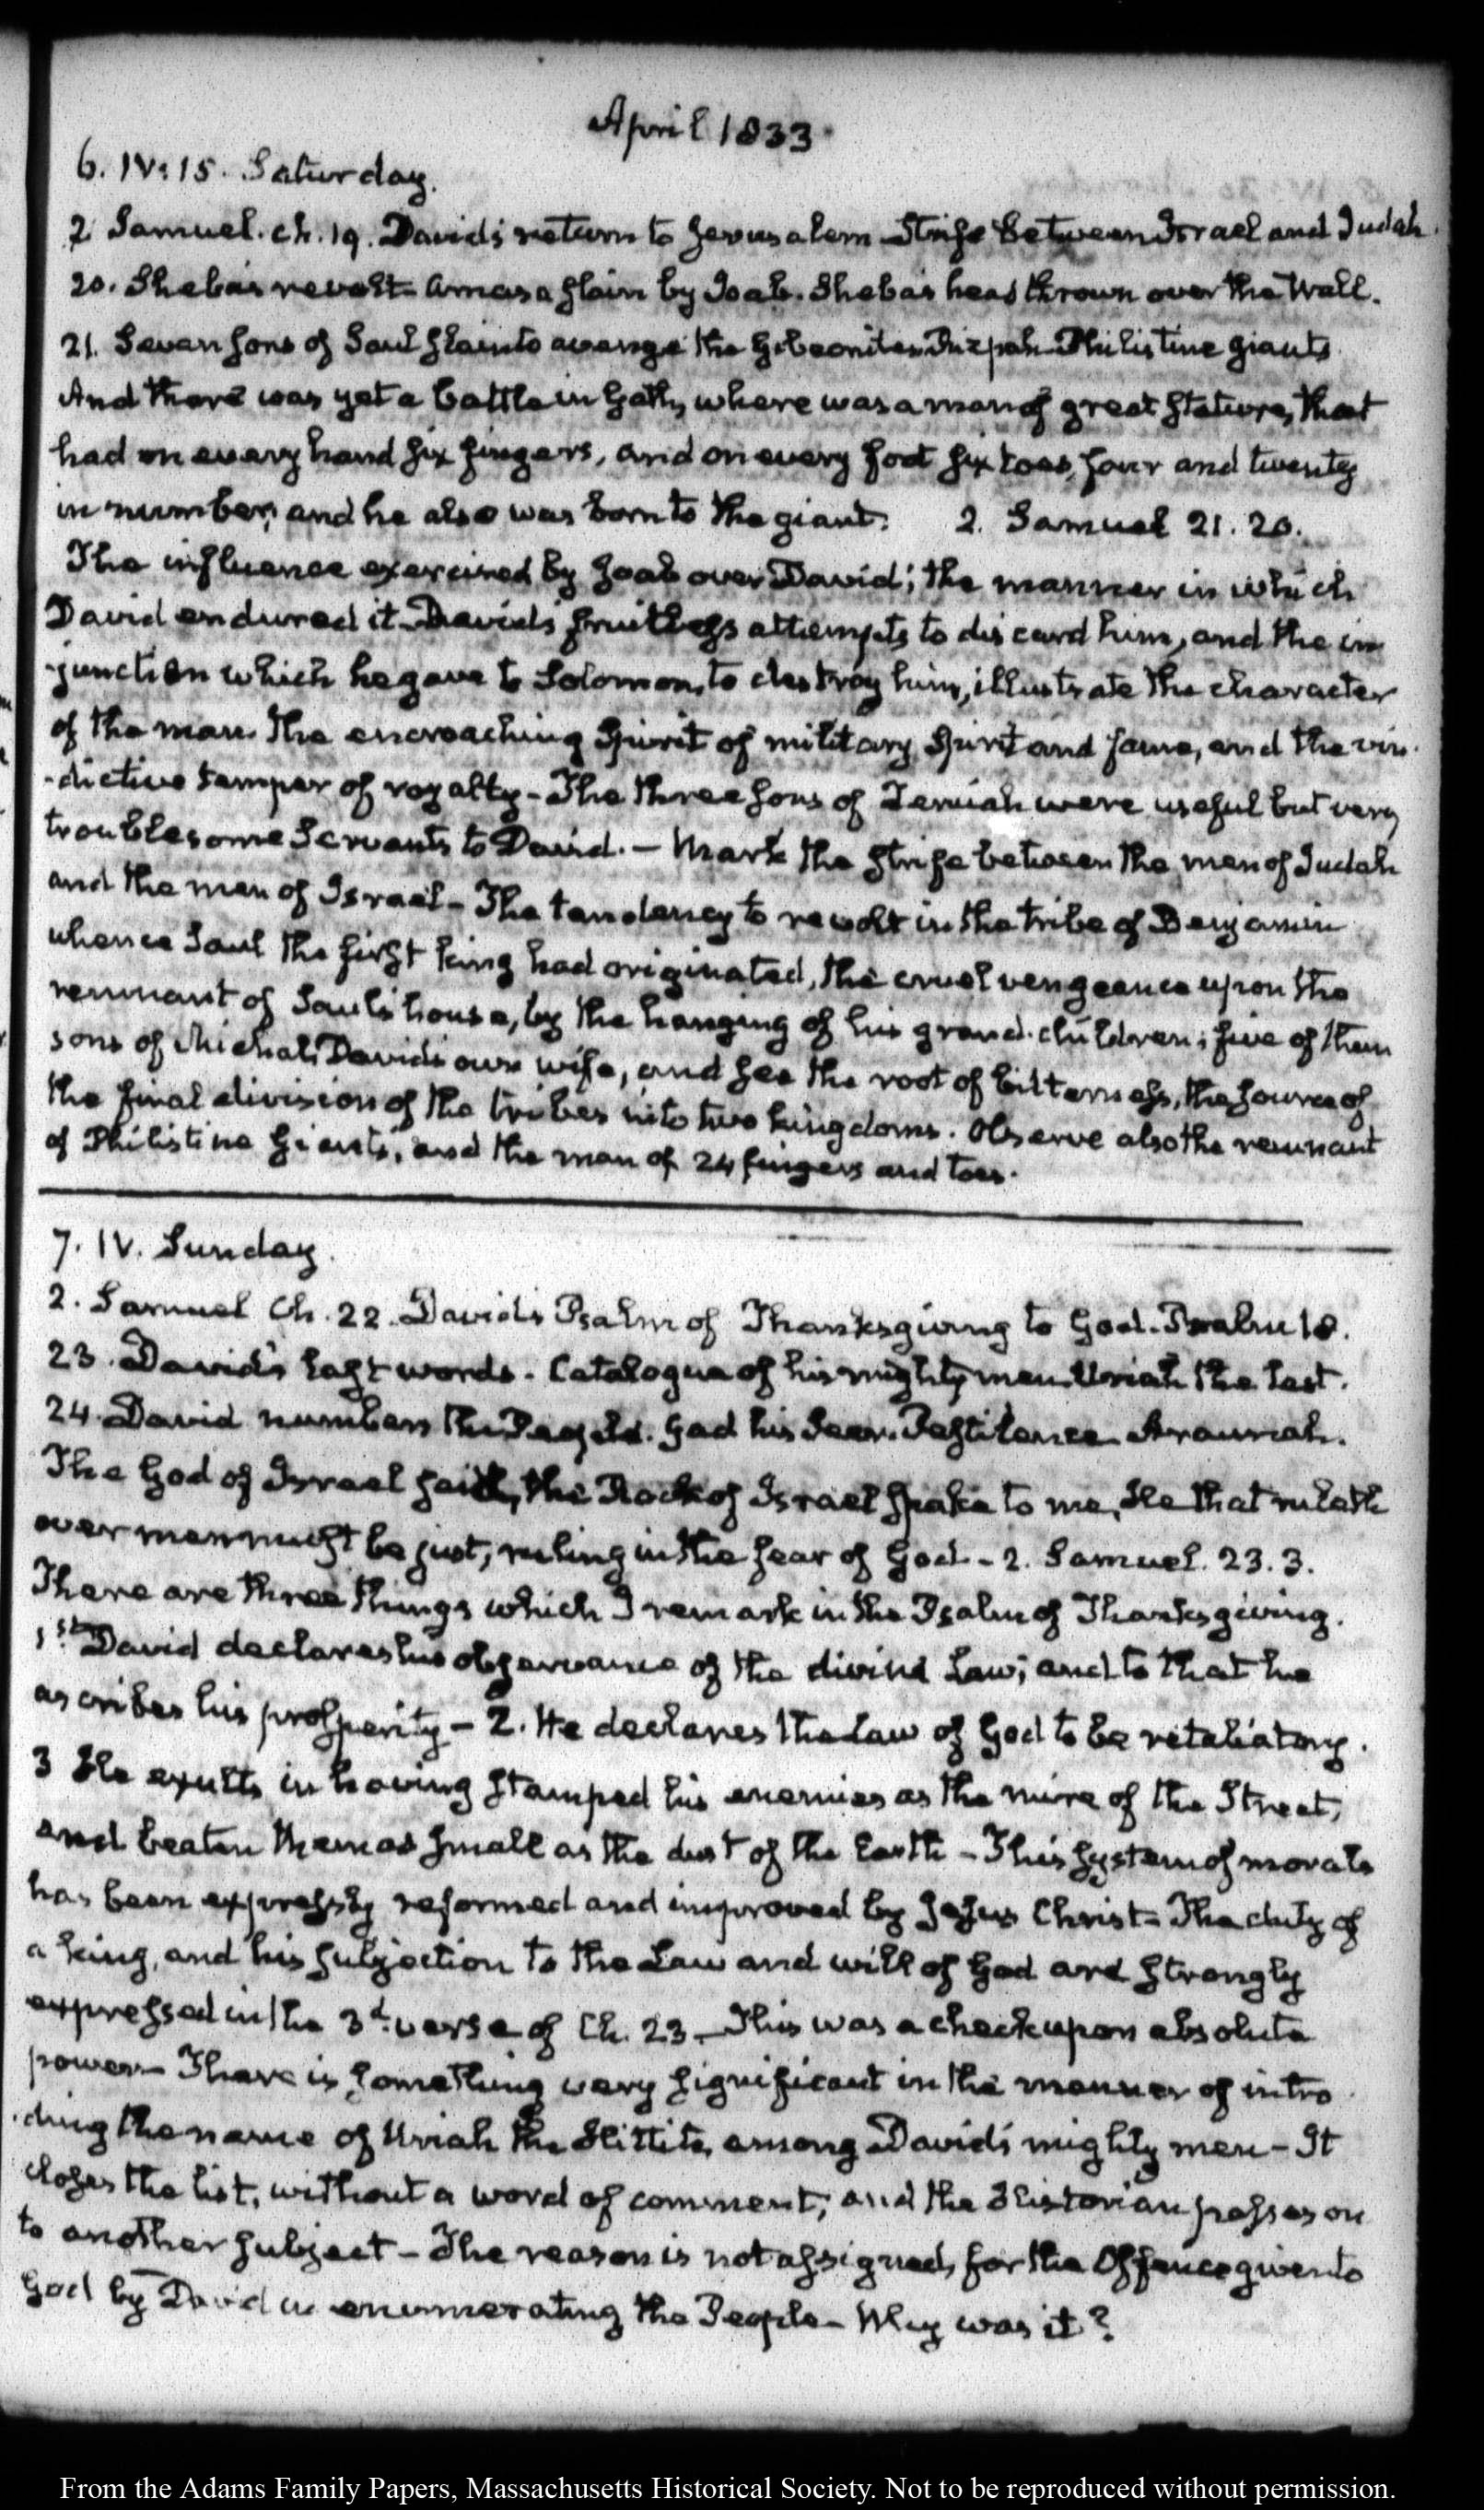 April 1833.
6. IV:15. Saturday.
2 Samuel. ch. 19. David's return to Jerusalem Strife between Israel and Judah.
20. Sheba's revolt. Amasa slain by Joab. Sheba's head thrown over the Wall.
21. Seven sons of Saul slain to avenge the Gibeonites. Rizpah. Philistine giants.
And there was yet a battle in Gath, where was a man of great stature, that
had on every hand six fingers, and on every foot six toes, four and twenty
in number; and he also was born to the giant. 2. Samuel 21. 20.
The influence exercised by Joab over David; the manner in which
David endured it. David's fruitless attempts to discard him, and the in
-junction which he gave to Solomon, to destroy him, illustrate the character
of the man. The encroaching Spirit of military Spirit and fame, and the vin
-dictive temper of royalty - The three sons of Zeruiah were useful but very
troublesome Servants to David. - Mark the strife between the men of Judah
and the men of Israel - The tendency to revolt in the tribe of Benjamin
whence Saul the first king had originated, the cruel vengeance upon the
remnant of Saul's house, by the hanging of his grand-children; five of them
sons of Michal, David's own wife, and see the root of bitterness, the source of
the final division of the tribes into two kingdoms. Observe also the remnant
of Philistine Giants, and the man of 24 fingers and toes.
7. IV. Sunday.
2. Samuel Ch. 22. David's Psalm of Thanksgiving to God. Psalm 18.
23. David's last words. Catalogue of his mighty men. Uriah the last.
24. David numbers the People. Gad his Seer. Pestilence. Araunah.
The God of Israel said, the Rock of Israel spake to me, He that ruleth
over men must be just, ruling in the fear of God - 2. Samuel. 23. 3.
There are three things which I remark in the Psalm of Thanksgiving.
1st. David declares his observance of the divine Law; and to that he
ascribes his prosperity - 2. He declares the Law of God to be retaliatory.
3 He exults in having stamped his enemies as the mire of the Street,
and beaten them as small as the dust of the Earth - This system of morals
has been expressly reformed and improved by Jesus Christ - The duty of
a king, and his subjection to the Law and will of God are strongly
expressed in the 3d. verse of Ch. 23 - This was a check upon absolute
power - There is something very significant in the manner of intro
-ding the name of Uriah the Hittite, among David's mighty men - It
closes the list, without a word of comment; and the Historian passes on
to another subject - The reason is not assigned, for the Offence given to
God by David in enumerating the People - Why was it?
From the Adams Family Papers, Massachusetts Historical Society. Not to be reproduced without permission.